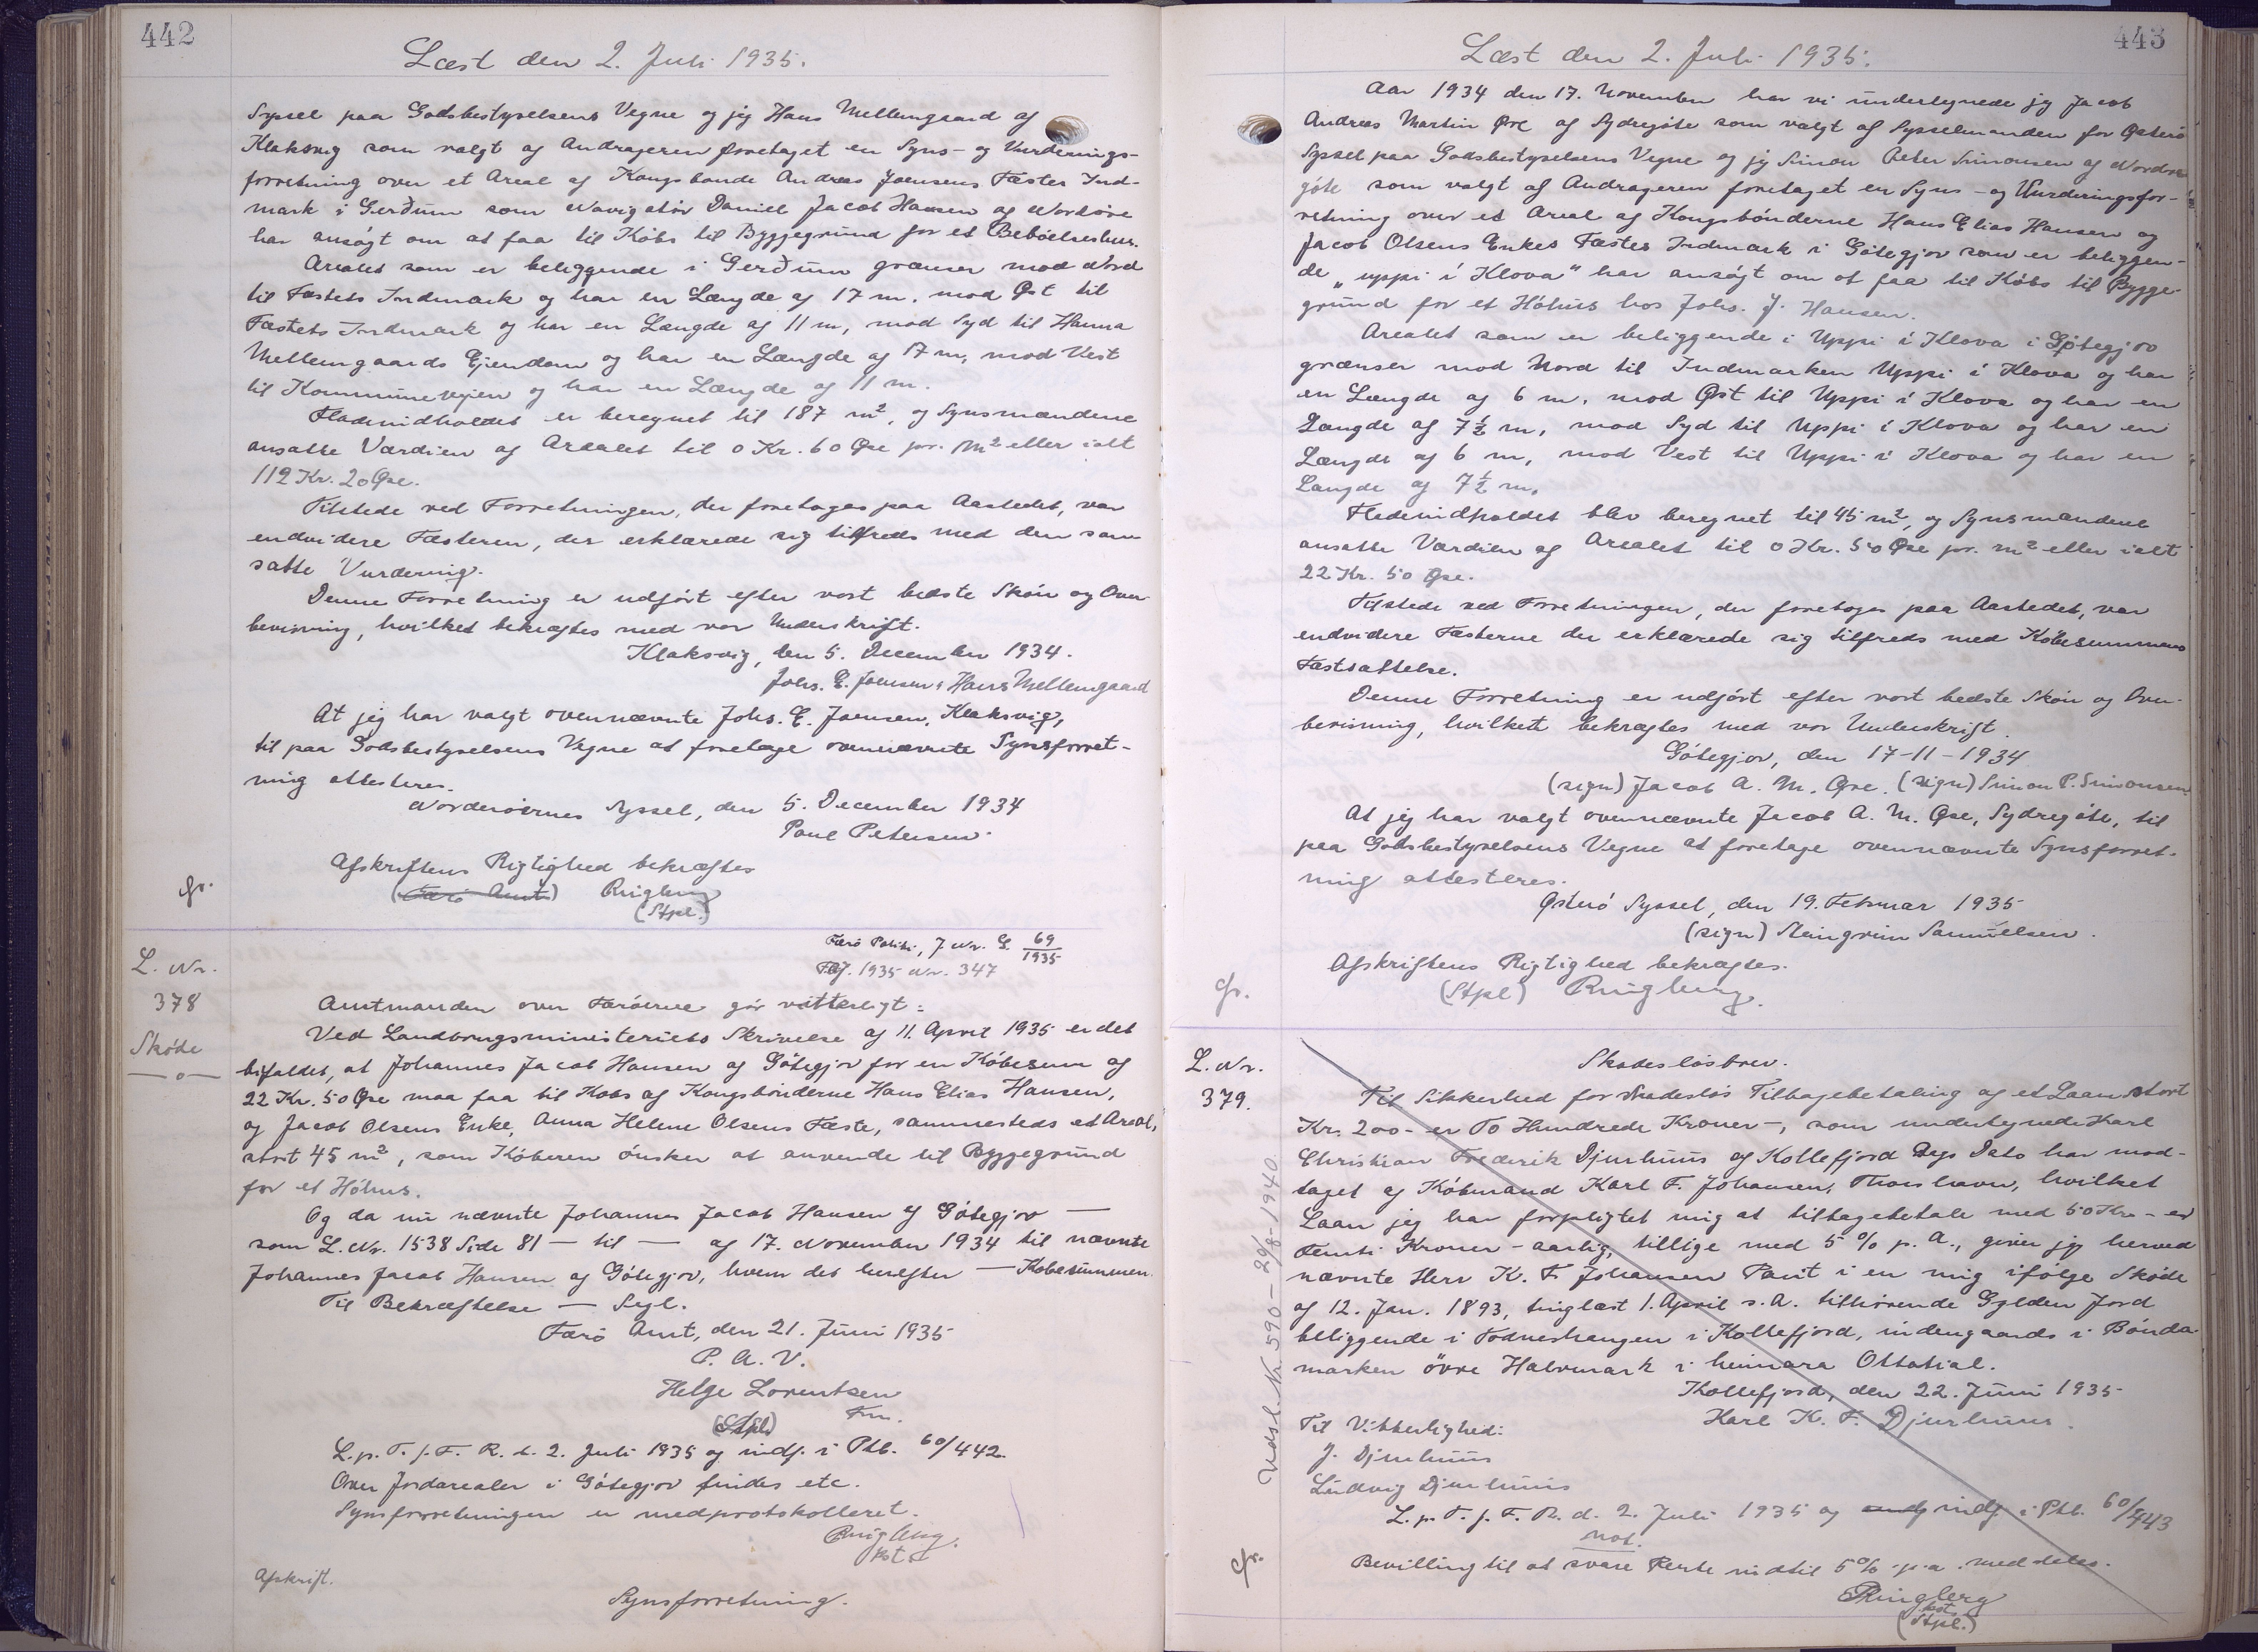 442
Læst den 2. Juli 1935.
Syssel paa Godsbestyrelsens Vegne og jeg Hans Mellemgaard af
Klaksvig som valgt af Andrageren foretaget en Syns- og Vurderings-
forretning over et Areal af Kongsbonde Andreas Joensens Fæstes Ind-
mark i Gerðum som Navigatör Daniel Jacob Hansen af Nordöre
har ansögt om at faa til Köbs til Byggegrund for et Beböelseshus.
Arealet som er beliggende i Gerðum grænser mod Nord
til Fæstets Indmark og har en Længde af 17 m. mod Øst til
Fæstets Indmark og har en Længde af 11 m, mod Syd til Hanna
Mellemgaards Ejendom og har en Længde af 17 m, mod Vest
til Kommunevejen og har en Længde af 11 m.
Fladeindholdet er beregnet til 187 m², og Synsmændene
ansatte Værdien af Arealet til 0 Kr. 60 Øre pr. m² eller ialt
112 Kr. 20 Øre.
Tilstede ved Forretningen, der foretoges paa Aastedet, var
endvidere Fæsteren, der erklærede sig tilfreds med den san
satte Vurdering.
Denne Forretning er udfört efter vort bedste Skön og Over-
bevisning, hvilket bekræftes med vor Underskrift.
Klaksvig, den 5. December 1934.
Johs. E. Joensen. Hans Mellemgaard
At jeg har valgt ovennævnte Johs. E. Joensen, Klaksvig,
til paa Godsbestyrelsens Vegne at foretage ovennævnte Synsforret-
ning attesteres.
Norderöernes Syssel, den 5. December 1934
Poul Petersen
Afskriftens Rigtighed bekræftes
(Færö Amt) Ringberg
(Stpl.)
gr.
Færö Politi, J. Nr. G. 69/1935
FAJ. 1935 Nr. 347
L. Nr.
378
Sköde
— o —
Amtmanden over Færöerne gör vitterligt:
Ved Landbrugsministeriets Skrivelse af 11. April 1935 er det
bifaldet, at Johannes Jacob Hansen af Götegjov for en Köbesum af
22 Kr. 50 Øre maa faa til Köbs af Kongsbönderne Hans Elias Hansen,
og Jacob Olsens Enke, Anna Helene Olsens Fæste, sammesteds et Areal,
stort 45 m², som Köberen önsker at anvende til Byggegrund
for et Höhus.
Og da nu nævnte Johannes Jacob Hansen af Götegjov —
som L. Nr. 1538 Side 81 — til — af 17. November 1934 til nævnte
Johannes Jacob Hansen af Götegjov, hvem det herefter — Köbesummen.
Til Bekræftelse — Segl.
Færö Amt, den 21. Juni 1935
P. A. V.
Helge Lorentsen
Fm.
(Stpl.)
L. p. T. f. F. R. d. 2. Juli 1935 og indf. i Ptb. 60/442.
Over Jordarealer i Götegjov findes etc.
Synsforretningen er medprotokolleret.
Ringberg
kst.
Afskrift.
Synsforretning.
443
Læst den 2. Juli 1935.
Aar 1934 den 17. November har vi undertegnede jeg Jacob
Andreas Martin Øre af Sydregöte som valgt af Sysselmanden for Østerö
Syssel paa Godsbestyrelsens Vegne og jeg Simon Peter Simonsen af Nordre
göte som valgt af Andrageren foretaget en Syns- og Vurderingsfor-
retning over et Areal af Kongsbönderne Hans Elias Hansen og
Jacob Olsens Enkes Fæstes Indmark i Götegjov som er beliggen-
de „uppi i Klova" har ansögt om at faa til Köbs til Bygge-
grund for et Höhus hos Johs. J. Hansen.
Arealet som er beliggende i Uppi i Klova i Götegjov
grænser mod Nord til Indmarken Uppi i Klova og har
en Længde af 6 m. mod Øst til Uppi i Klova og har en
Længde af 7½ m, mod Syd til Uppi i Klova og har en
Længde af 6 m, mod Vest til Uppi i Klova og har en
Længde af 7½ m.
Fladeindholdet blev beregnet til 45 m², og Synsmændene
ansatte Værdien af Arealet til 0 Kr. 50 Øre pr. m² eller ialt
22 Kr. 50 Øre.
Tilstede ved Forretningen, der foretoges paa Aastedet, var
endvidere Fæsterne der erklærede sig tilfreds med Köbesummens
Fastsættelse.
Denne Forretning er udfört efter vort bedste Skön og Over-
bevisning, hvilket bekræftes med vor Underskrift.
Götegjov, den 17-11-1934
(sign) Jacob A. M. Øre. (sign) Simon P. Simonsen.
At jeg har valgt ovennævnte Jacob A. M. Øre, Sydregöte, til
paa Godsbestyrelsens Vegne at foretage ovennævnte Synsforret-
ning attesteres.
Østerö Syssel, den 19. Februar 1935
(sign) Steingrim Samuelsen.
Afskriftens Rigtighed bekræftes.
(Stpl) Ringberg.
gr.
L. Nr.
379.
Skadeslösbrev.
Til Sikkerhed for skadeslös Tilbagebetaling af et Laan stort
Kr. 200- er To Hundrede Kroner-, som undertegnede Karl
Christian Frederik Djurhuus af Kollefjord Dags Dato har mod-
taget af Köbmand Karl F. Johansen, Thorshavn, hvilket
Laan jeg har forpligtet mig at tilbagebetale med 50 Kr. - er
Femti Kroner - aarlig, tillige med 5 % p. a., giver jeg herved
nævnte Herr K. F. Johansen Pant i en mig ifölge Sköde
af 12. Jan. 1893, tinglæst 1. April s. A. tilhörende Gylden Jord
beliggende i Todneshangen i Kollefjord, indengaards i Bönda-
marken övre Halvmark i heimara Ottatial.
Kollefjord, den 22. Juni 1935
Karl K. F. Djurhuus.
Til Vitterlighed:
J. Djurhuus
Ludvig Djurhuus
L. p. T. f. F. R. d. 2. Juli 1935 og indf. i Ptb. 60/443
not.
Bevilling til at svare Rente indtil 5% p. a. meddeles.
Ringberg
kst.
(Stpl.)
gr.
Udsl. Nr. 590 - 29/8-1940